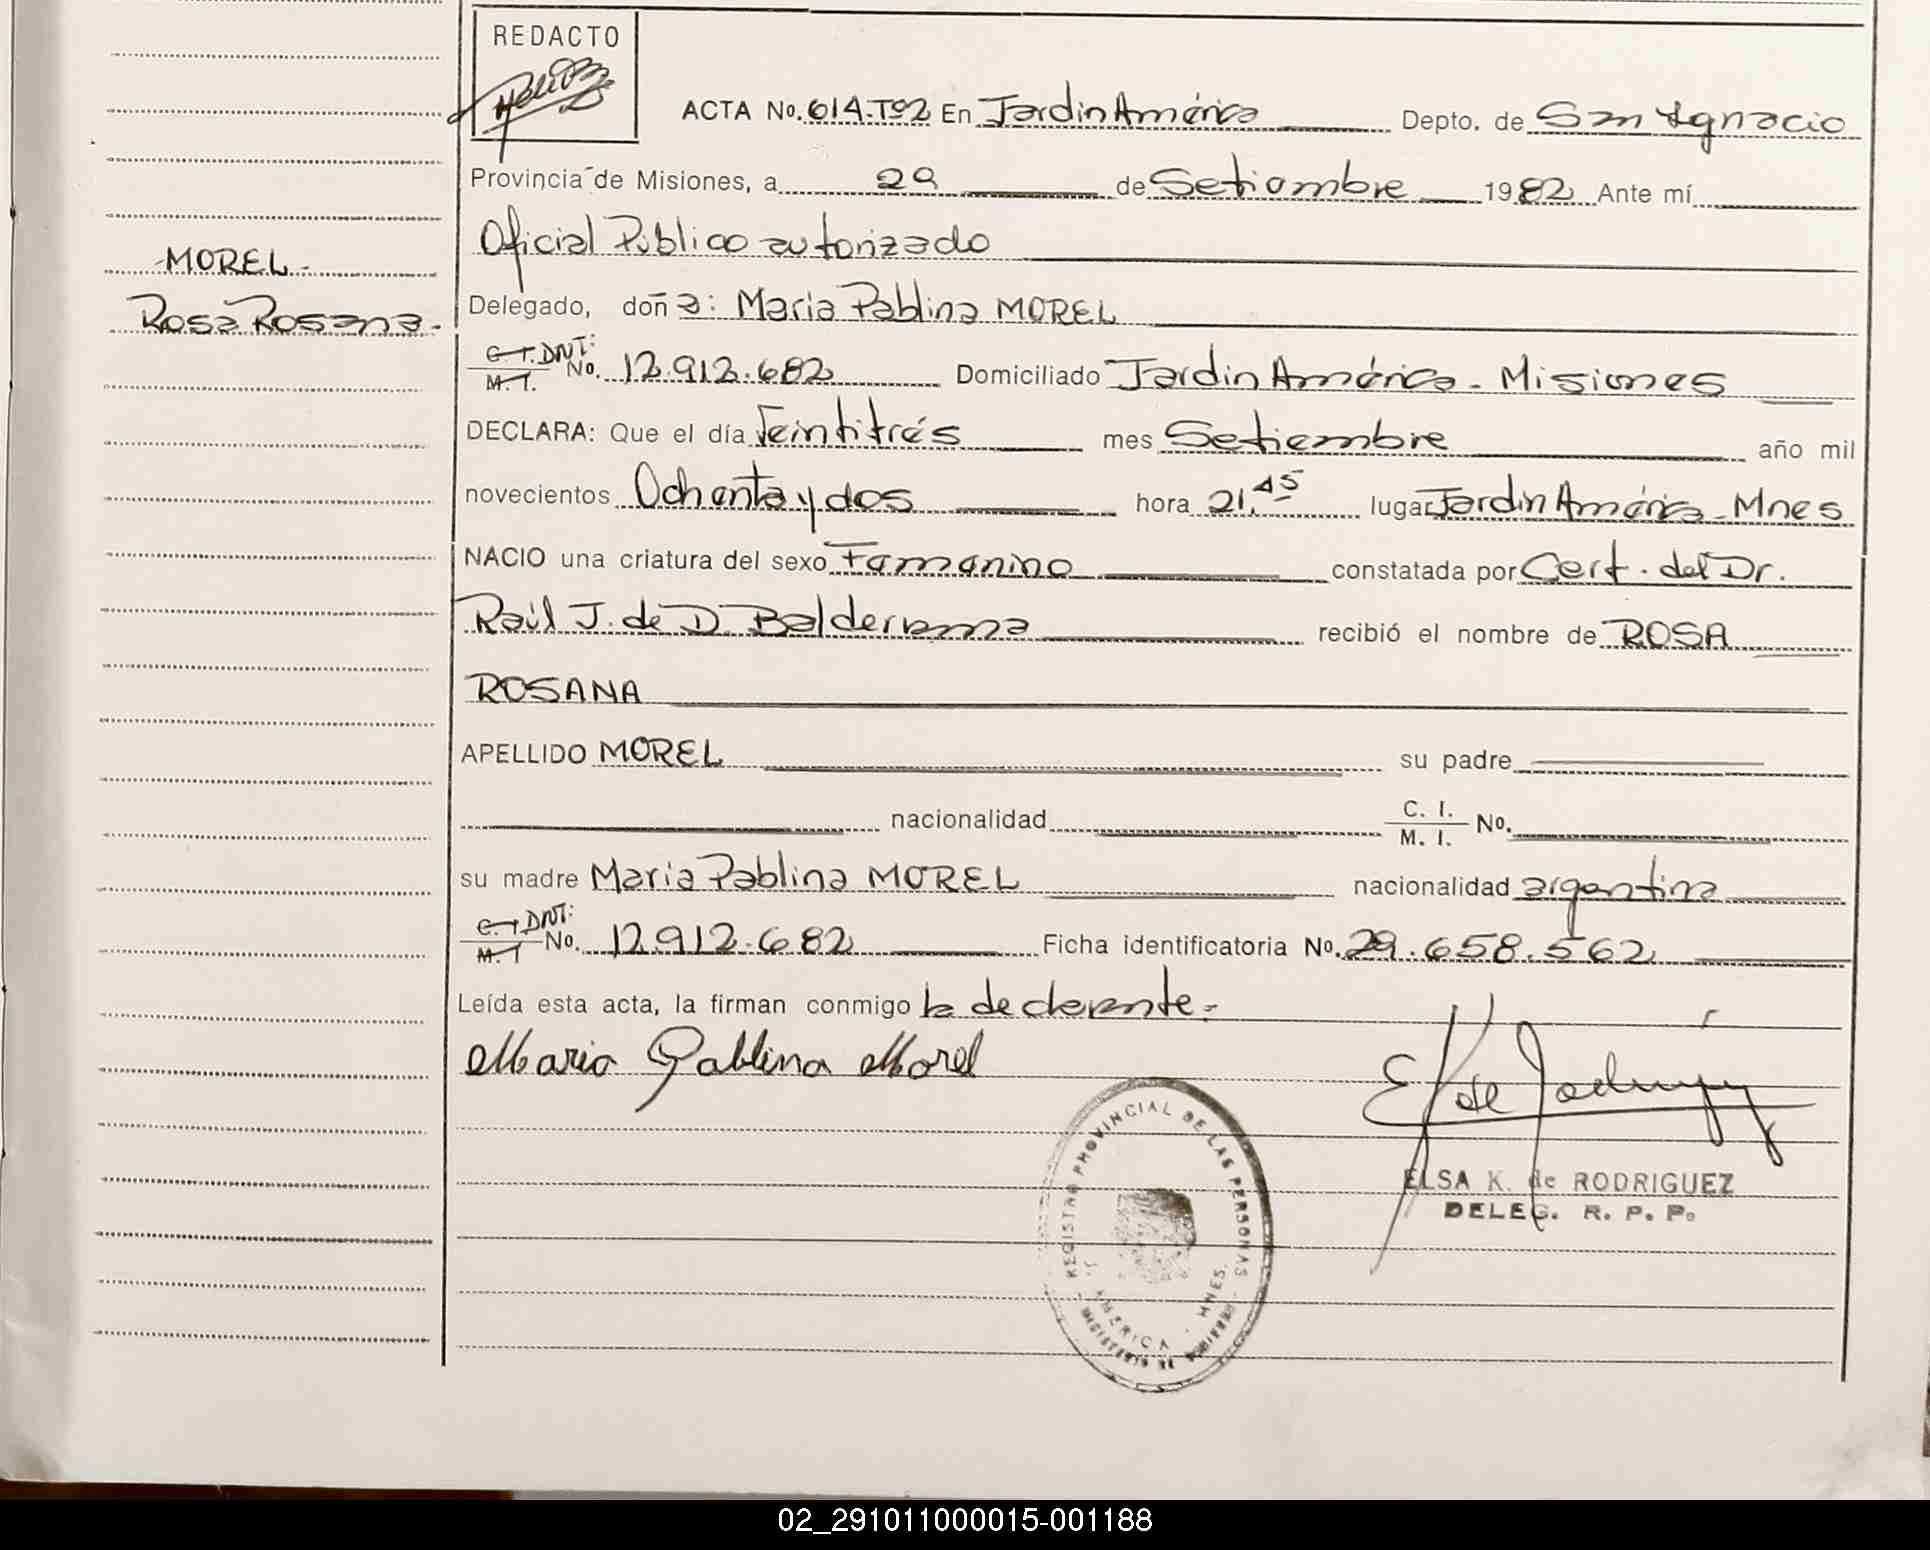 REDACTO
ACTA No. 614-Tº2 En Jardin América Depto. de San Ignacio
Provincia de Misiones, a 29 de Setiembre 1982 Ante mí
Oficial Público autorizado
MOREL
Rosa Rosana.
Delegado, doña: Maria Pablina MOREL
C.I. DNI:
M.I. No. 12.912.682 Domiciliado Jardin América - Misiones
DECLARA: Que el día Veintitrés mes Setiembre año mil
novecientos Ochenta y dos hora 21,45 lugar Jardin América - Mnes
NACIO una criatura del sexo Femenino constatada por Cert. del Dr.
Raúl J. de D. Balderrama recibió el nombre de ROSA
ROSANA
APELLIDO MOREL su padre
nacionalidad C. I. M. I. No.
su madre Maria Pablina MOREL nacionalidad argentina
C.I. DNI:
M.I No. 12.912.682 Ficha identificatoria No. 29.658.562
Leída esta acta, la firman conmigo la declarante.-
Maria Pablina Morel
E K de Rodriguez
ELSA K. de RODRIGUEZ
DELEG. R. P. P.
REGISTRO PROVINCIAL DE LAS PERSONAS
J. AMERICA - MNES.
MINISTERIO DE GOBIERNO
02_291011000015-001188